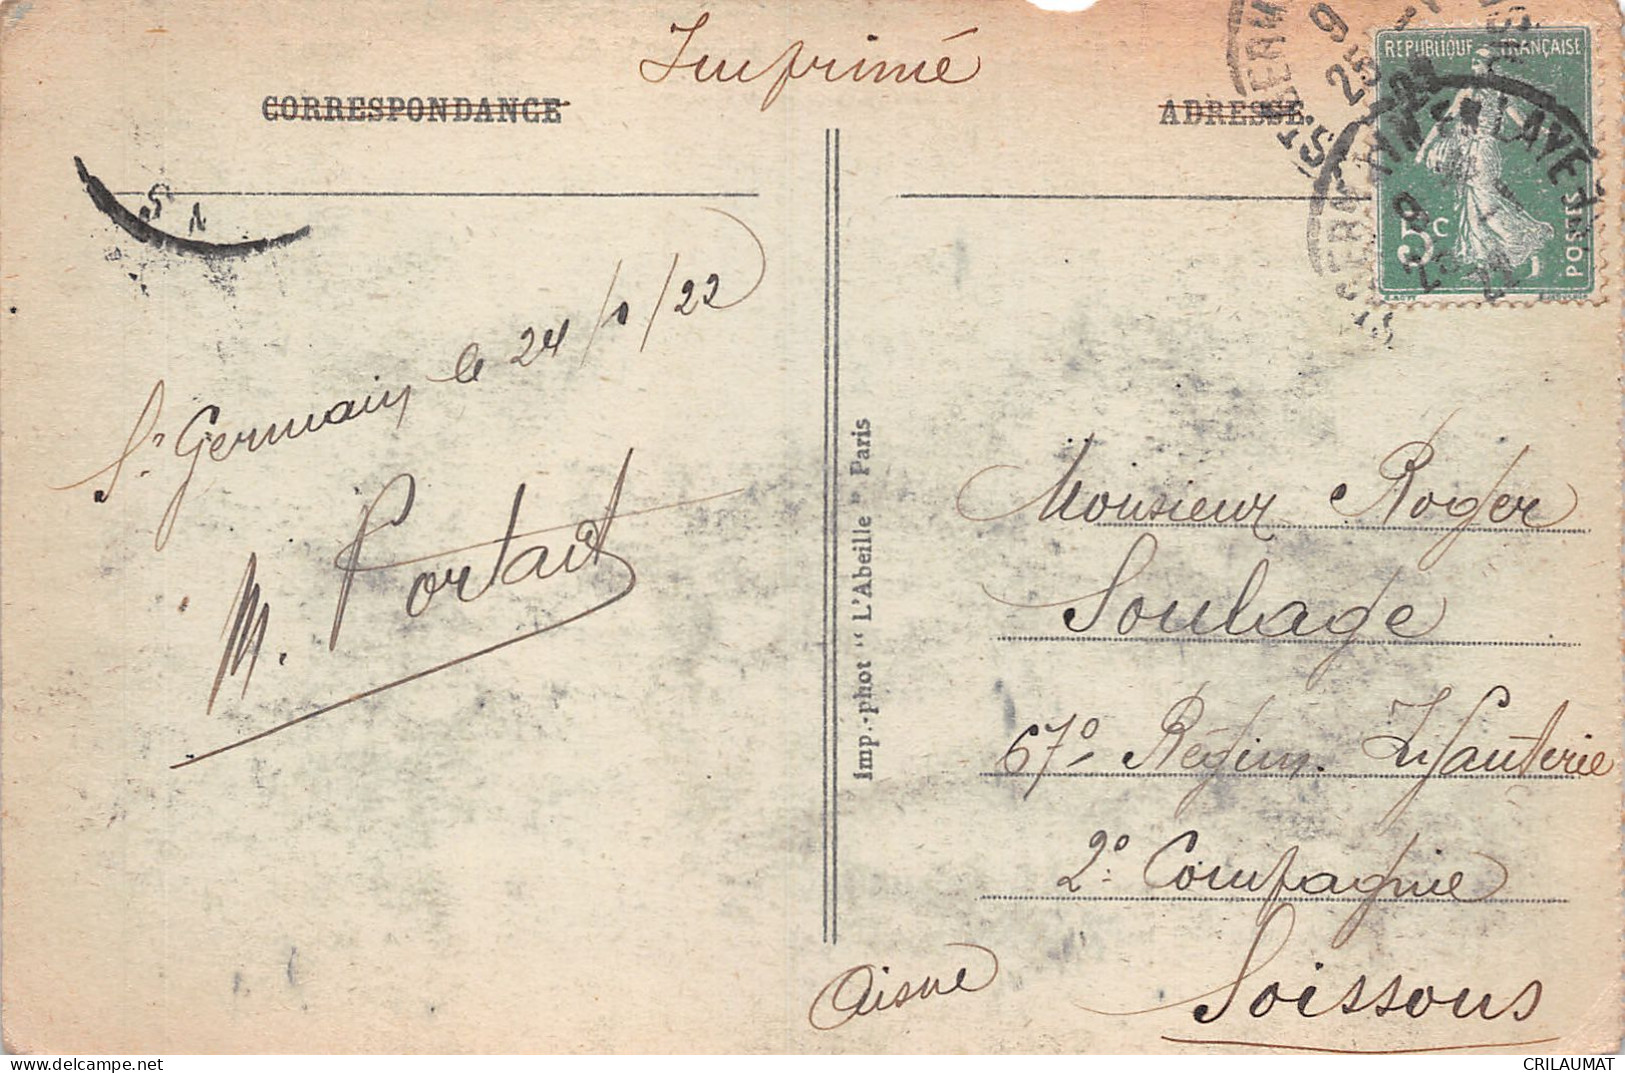 Imprimé
CORRESPONDANCE
ADRESSE.
REPUBLIQUE FRANÇAISE
5c
POSTES
St GERMAIN EN LAYE
9
25
22
St Germain le 24/1/22
M. Portait
Imp.-phot " L'Abeille " Paris
Monsieur Roger
Soulage
67e Régim. Infanterie
2e Compagnie
Soissons
Aisne
CRILAUMAT